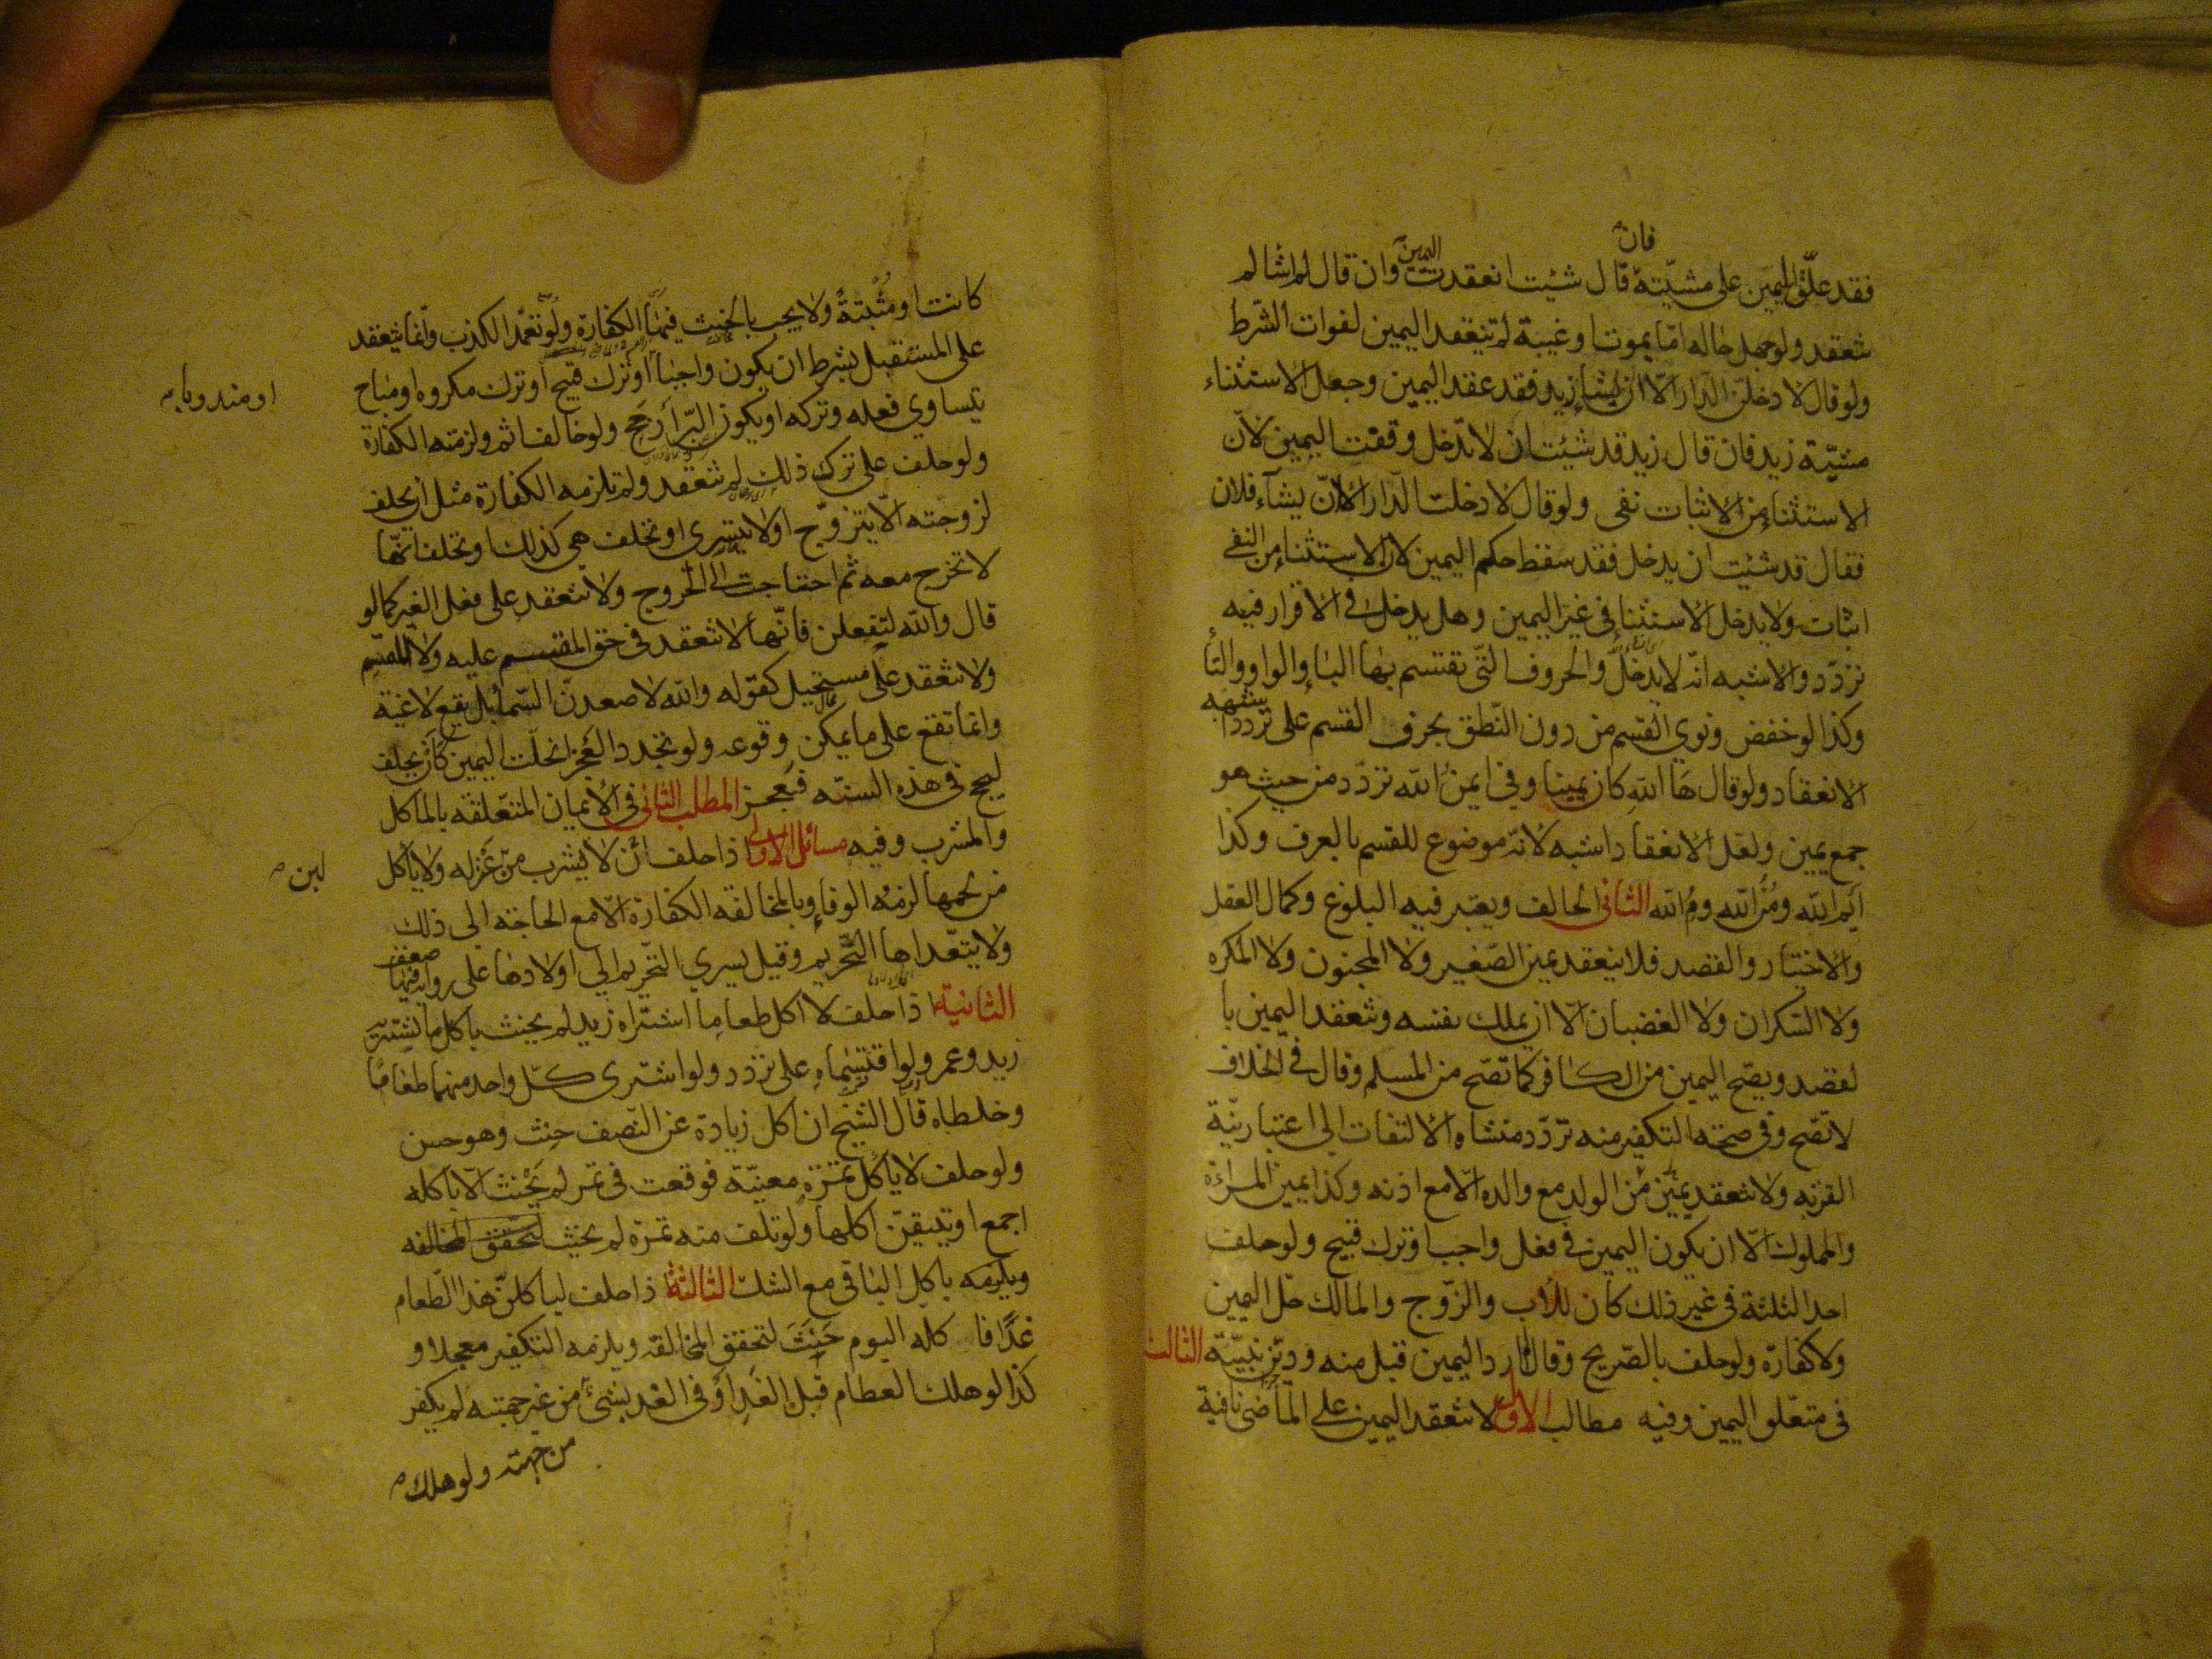 فان
فقد علّق اليمين على مشيّته قال شئت انعقدت اليمين وان قال لم اشا لم
تنعقد ولو جهل حاله امّا بموت او غيبة لم تنعقد اليمين لفوات الشرط
ولو قال لادخلن الدار الّا ان يشاء زيد فقد عقد اليمين وجعل الاستثناء
مشيّة زيد فان قال زيد قد شئت ان لا تدخل وقفت اليمين لانّ
الاستثناء من الاثبات نفى ولو قال لا دخلت الدار الا ان يشآء فلان
فقال قد شئت ان يدخل فقد سقط حكم اليمين لان الاستثناء من النفى
اثبات ولا يدخل الاستثناء فى غير اليمين وهل يدخل فى الاقرار فيه
تردّد والاشبه انّه لا يدخل والحروف التّى تقتسم بها الباء والواو والتأ
وكذا لو خفض ونوى القسم من دون النّطق بحرف القسم على تردد اشبهه
الانعقاد ولو قال ها الله كان يمينا وفى ايمن الله تردّد من حيث هو
جمع يمين ولعل الانعقاد اشبه لانّه موضوع للقسم بالعرف وكذا
ايم الله ومُن الله ومُ الله الثانى الحالف ويعتبر فيه البلوغ وكمال العقل
والاختيار والقصد فلا ينعقد يمين الصّغير ولا المجنون ولا المكره
ولا السّكران ولا الغضبان الّا ان يملك نفسه وتنعقد اليمين با
لقصد ويصّح اليمين من الكافر كما تصّح من المسلم وقال فى الخلاف
لا تصّح وفى صحّة التكفير منه تردّد منشاه الالتفات الى اعتبار نيّة
القربه ولا تنعقد يمين من الولد مع والده الّا مع اذنه وكذا يمين المراة
والمملوك الّا ان يكون اليمين فى فعل واجب او ترك قبيح ولو حلف
احد الثلثة فى غير ذلك كان للأب والزّوج والمالك حلّ اليمين
ولا كفارّة ولو حلف بالصّريح وقال لم ارد اليمين قبل منه ودين بنيّته الثالث
فى متعلّق اليمين وفيه مطالب الاول لا تنعقد اليمين على الماضى نافية
كانت او مُثبتةً ولا يجب بالحنث فيها الكفارة ولو تعمّد الكذب وانّما تنعقد
على المستقبل بشرط ان يكون واجبا او ترك قبيح او ترك مكروه او مباح
او مندوبا
يتساوى فعله وتركه او يكون البرّ ارجح ولو خالف اثم ولزمته الكفارة
ولو حلف على ترك ذلك لم تنعقد ولم تلزمه الكفارة مثل ان يحلف
لزوجته الّا يتزوّج او لا يتسرى او تحلف هى كذلك او تحلف انّها
لا تخرج معه ثم احتاجت الى الخروج ولا تنعقد على فعل الغير كما لو
قال والله لتفعلن فانّها لا تنعقد فى حق المقسم عليه ولا المقسم
ولا تنعقد على مستحيل كقوله والله لاصعدنّ السّماء بل يقع لاغية
وانما تقع على ما يمكن وقوعه ولو تجدد العجز انحلّت اليمين كان يحلف
ليحج فى هذه السنه فيعجز المطلب الثانى فى الايمان المتعلّقه بالماكل
والمشرب وفيه مسائل الاولى اذا حلف ان لا يشرب من عنزله ولا ياكل
لبن
من لحمها لزمه الوفاء وبالمخالفه الكفارة الّا مع الحاجة الى ذلك
ولا يتعّداها التّحريم وقيل يسرى التّحريم الى اولادها على رواية فيها ضعف
الثانية اذا حلف لا اكل طعاما اشتراه زيد لم يحنث باكل ما يشتريه
زيد وعمرو ولو اقتسماه على تردد ولو اشترى كلّ واحد منهما طعاما
وخلطاه قال الشيخ ان اكل زيادة عن النّصف حنث وهو حسن
ولو حلف لا ياكل تمرة معيّنة فوقعت فى تمر لم يحنث الّا باكله
اجمع او تيقن اكلها ولو تلف منه تمرة لم يحنث لتحّقق المخالفه
ويلزمه باكل الباقى مع الشك الثالثة اذا حلف لياكلنّ هذا الطعام
غدًا فا كله اليوم حَنِثَ لتحقق المخالفة ويلزمه التكفير معجلا و
كذا لو هلك العطام قبل الغد او فى الغد بشئ من غير جهته لم يكفر
من جهته ولو هلك